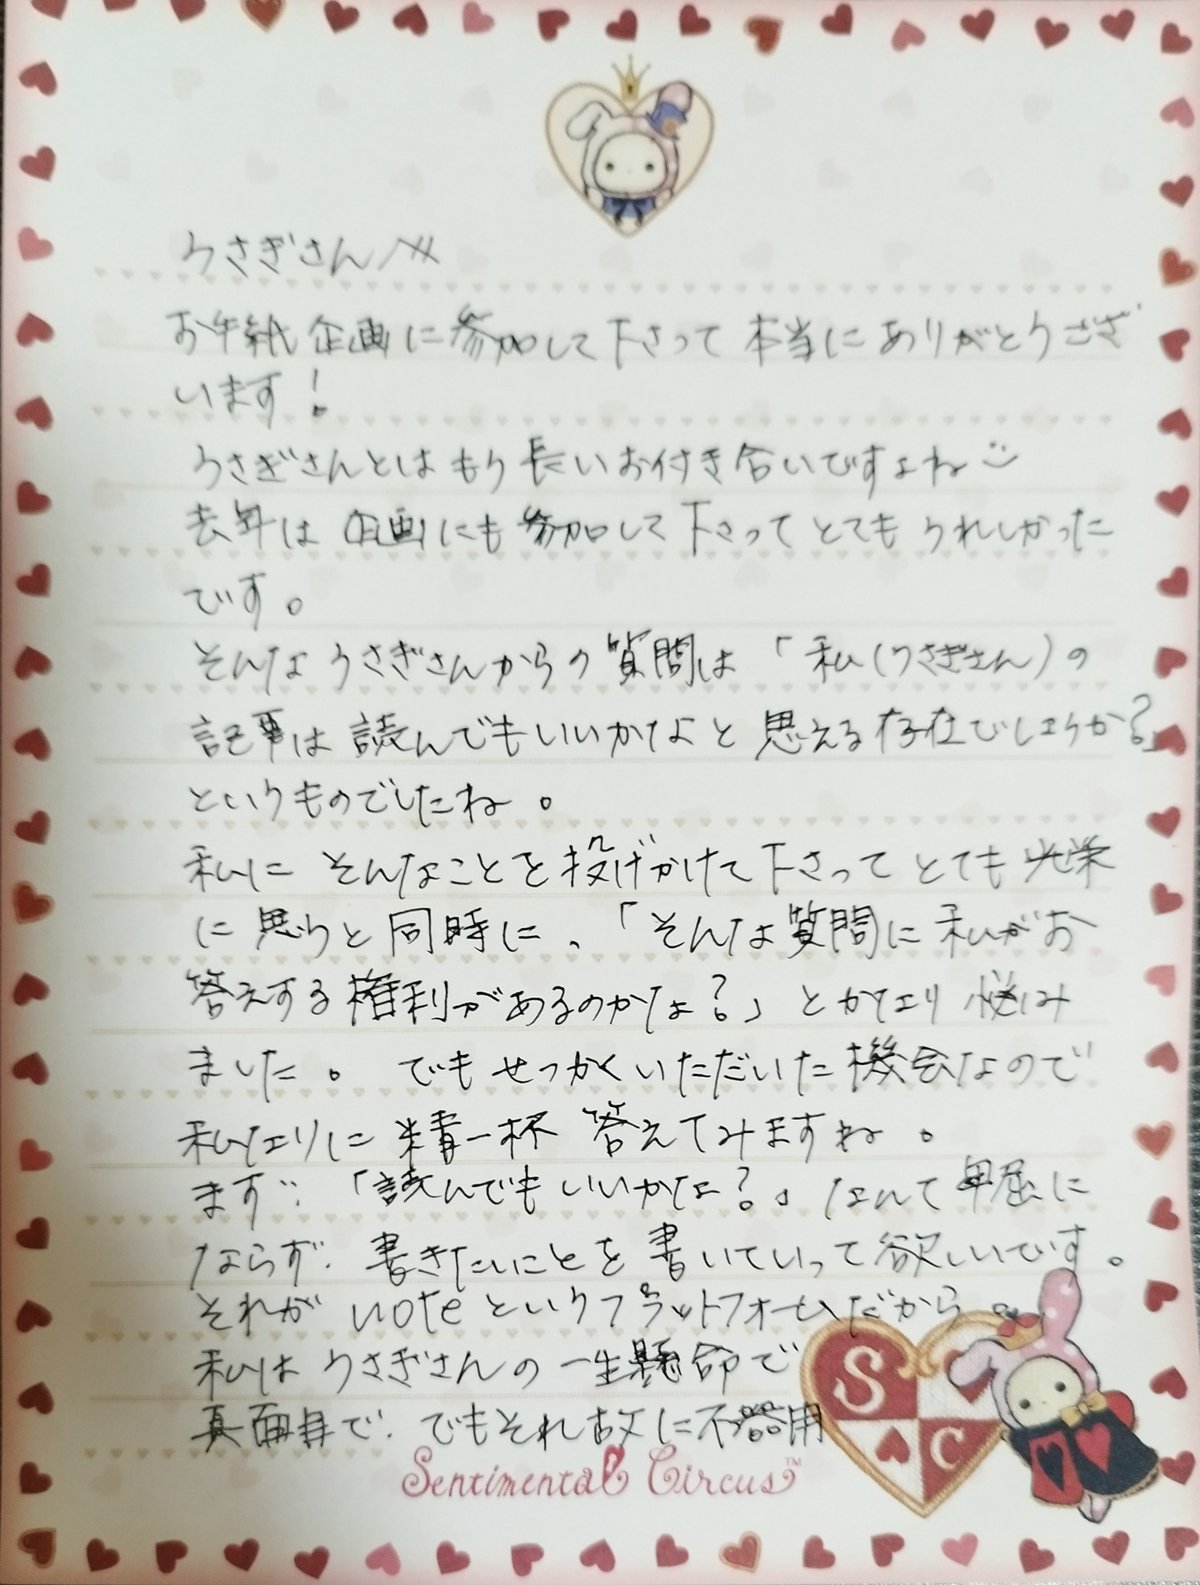 うさぎさんへ
お手紙企画に参加して下さって本当にありがとうござ
います!
うさぎさんとはもう長いお付き合いですよね
去年は企画にも参加して下さってとてもうれしかった
です。
そんなうさぎさんからの質問は「私(うさぎさん)の
記事は読んでもいいかなよと思える存在でしょうか?」
というものでしたね。
私にそんなことを投げかけて下さってとても光栄
に思うと同時に、「そんな質問に私がお
答えする権利があるのかな?」とかなり悩み
ました。でもせっかくいただいた機会なので
私なりに精一杯答えてみますね。
まず、「読んでもいいかな?」なんて卑屈に
ならず、書きたいことを書いていって欲しいです。
それがnoteというプラットフォームだから。
私はうさぎさんの一生懸命で
真面目で、でもそれ故に不器用
Sentimental Circus™
S
C